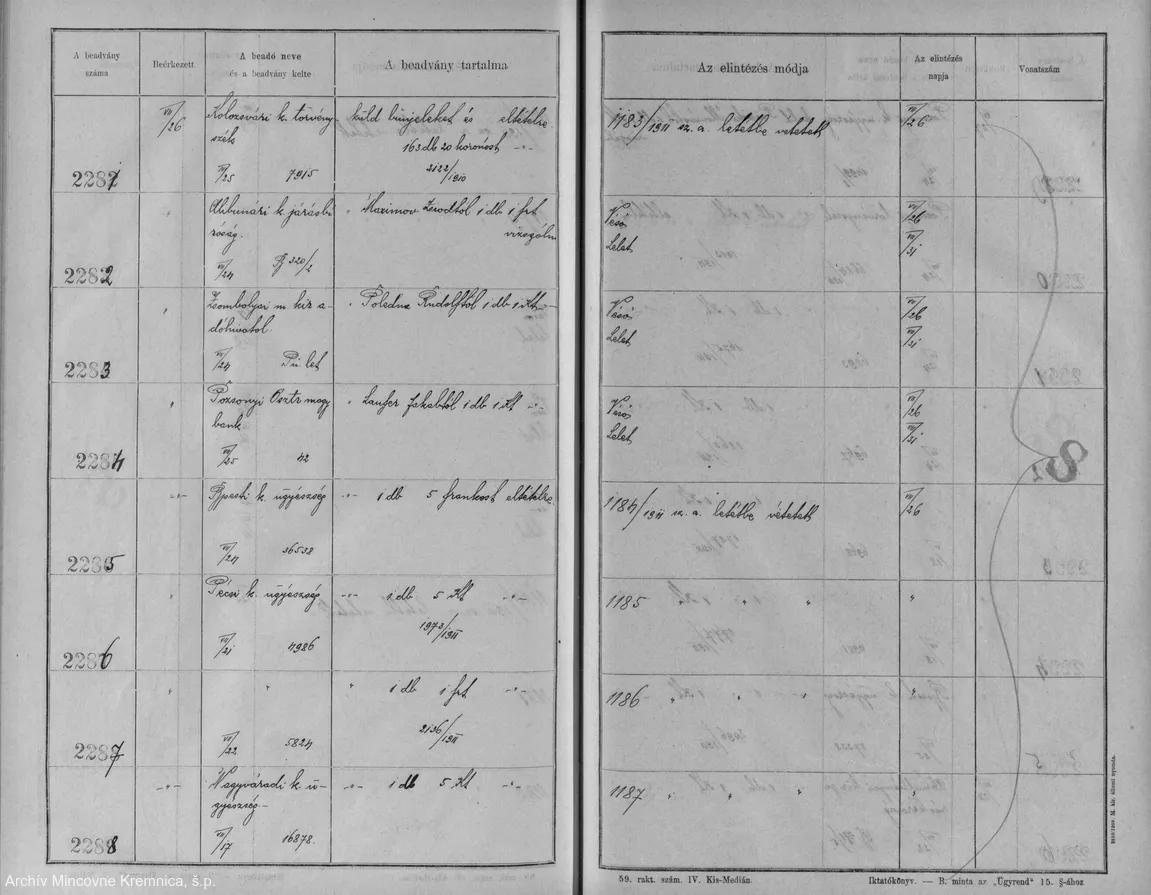 A beadvány száma
Beérkezett
A beadó neve és a beadvány kelte
A beadvány tartalma
Az elintézés módja
Az elintézés napja
Vonatszám
2281
VII/26
Kolozsvári k. törvény-
szék
VII/25 7915
küld bűnjeleket és eltételre
163 db 20 koronást -"-
2122/1910
1183/1911 sz. a. letétbe vétetett
VII/26
2282
"
Alibunári k. járásbí-
róság.
VII/24 320/2
" Maximov 1 db 1 frt
vizsgálni
Véső
Lelet
VII/26
VII/31
2283
"
Zsombolyai m. kir. a-
dóhivatal
VII/24 Pü. let
" Poledna Rudolftól 1 db 1 Kt -"-
Véső
Lelet
VII/26
VII/31
2284
"
Pozsonyi Osztr. magy.
bank
VII/25 42
" Laufer Jakabtól 1 db 1 Kt -"-
Véső
Lelet
VII/26
VII/31
2285
-"-
Bpesti k. ügyészség
VII/24 36538
-"- 1 db 5 frankost eltételre
1184/1911 sz. a. letétbe vétetett
VII/26
2286
Pécsi k. ügyészség
VII/21 4986
-"- 1 db 5 Kt -"-
1973/1911
1185 " " "
"
2287
" "
VII/22 5824
" 1 db 1 frt -"-
2136/1911
1186 " " "
"
2288
-"-
Nagyváradi k. ü-
gyészség
VII/17 16878.
-"- 1 db 5 Kt -"-
1187 " " "
"
59. rakt. szám. IV. Kis-Medián.
Iktatókönyv. — B. minta az „Ügyrend" 15. §-ához
Archív Mincovne Kremnica, š.p.